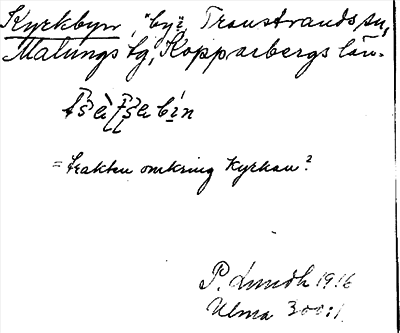 Kyrkbyn, "by" Transtrands sn,
Malungs tg, Kopparbergs län.
= trakten omkring Kyrkan?
P. Lundh 1916
Ulma 300:1